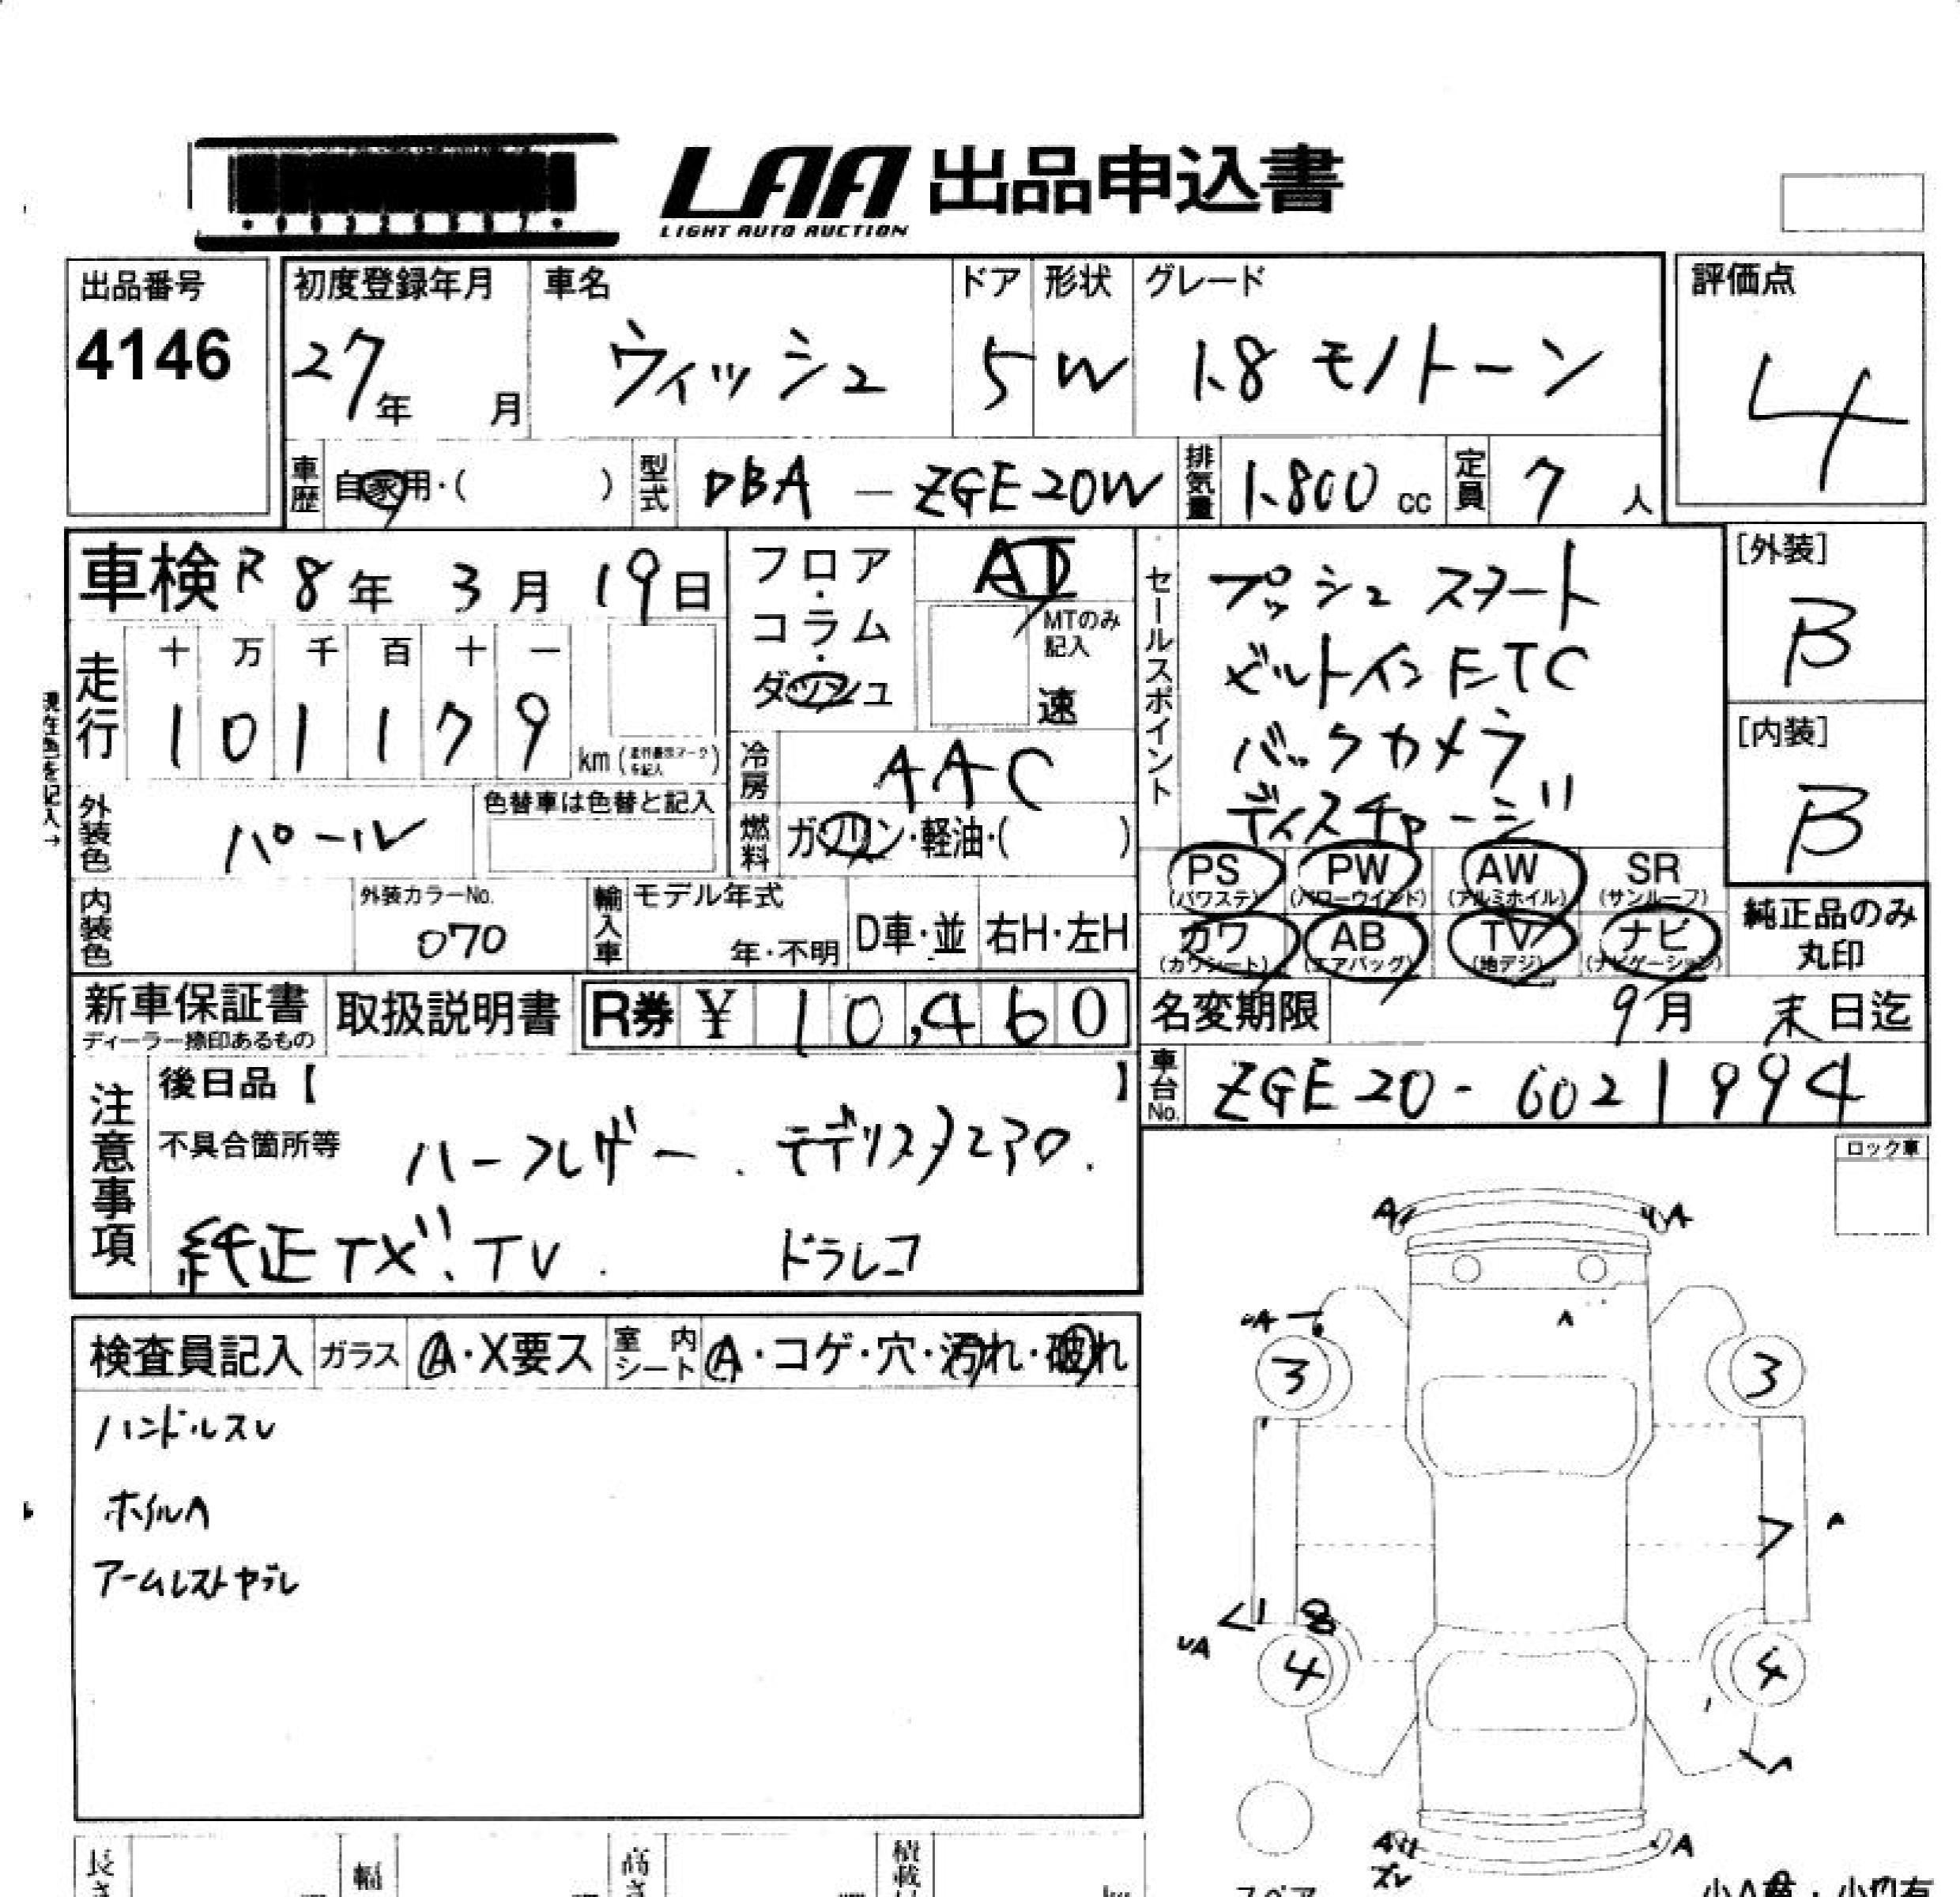 LAA 出品申込書
LIGHT AUTO AUCTION
出品番号
4146
初度登録年月
27年 月
車名
ウィッシュ
ドア
5
形状
W
グレード
1.8 モノトーン
評価点
4
車歴
自家用・( )
型式
DBA - ZGE20W
排気量
1.800 cc
定員
7 人
車検 R 8年 3月 19日
フロア・コラム・ダッシュ
AT
MTのみ記入
速
セールスポイント
プッシュスタート
ビルトインETC
バックカメラ
ディスチャージ
[外装]
B
[内装]
B
現在色を記入→
走行
十 万 千 百 十 一
1 0 1 1 7 9 km (走行表示マークを記入)
冷房
AAC
外装色
パール
色替車は色替と記入
燃料
ガソリン・軽油・( )
内装色
外装カラーNo.
070
輸入車
モデル年式
年・不明
D車・並
右H・左H
PS (パワステ)
PW (パワーウインド)
AW (アルミホイル)
SR (サンルーフ)
カワ (カワシート)
AB (エアバッグ)
TV (地デジ)
ナビ (ナビゲーション)
純正品のみ丸印
新車保証書
ディーラー捺印あるもの
取扱説明書
R券 ¥ 10,460
名変期限
9月 末日迄
車台No.
ZGE20-6021994
注意事項
後日品【 】
不具合箇所等
ハーフレザー . モデリスタエアロ.
純正ナビ. TV . ドラレコ
ロック車
検査員記入
ガラス
A・X要ス
室内シート
A・コゲ・穴・汚れ・破れ
ハンドルスレ
ホイルA
アームレストヤブレ
A
A
UA
A
3
3
A
UA
4
4
A
A
ズレ
A
長さ
幅
高さ
積載
スペア